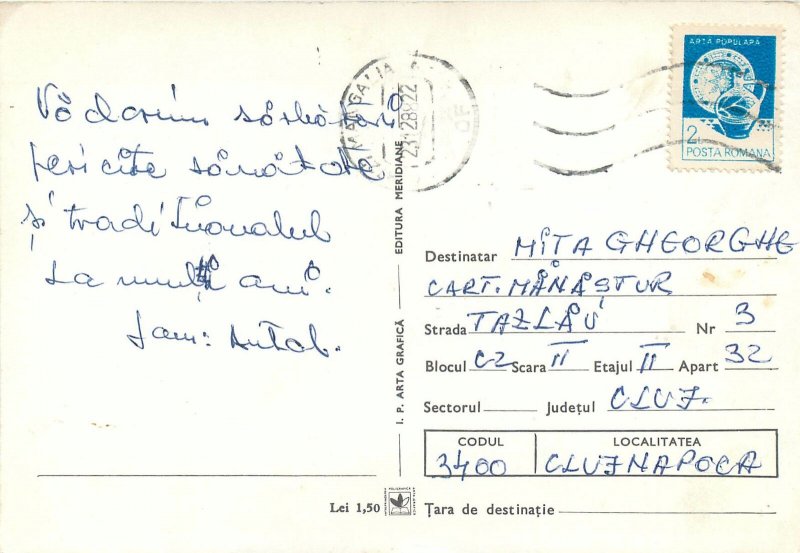 Vă dorim sărbători
fericite sănătate
și tradiționalul
La mulți ani.
Fam:
MANGALIA
ARTA POPULARĂ
2
POSTA ROMANA
EDITURA MERIDIANE
I. P. ARTA GRAFICĂ
Destinatar MITA GHEORGHE
CART. MĂNĂȘTUR
Strada TAZLĂU Nr 3
Blocul C2 Scara II Etajul II Apart 32
Sectorul Județul CLUJ.
CODUL LOCALITATEA
3400 CLUJNAPOCA
Lei 1,50 Țara de destinație